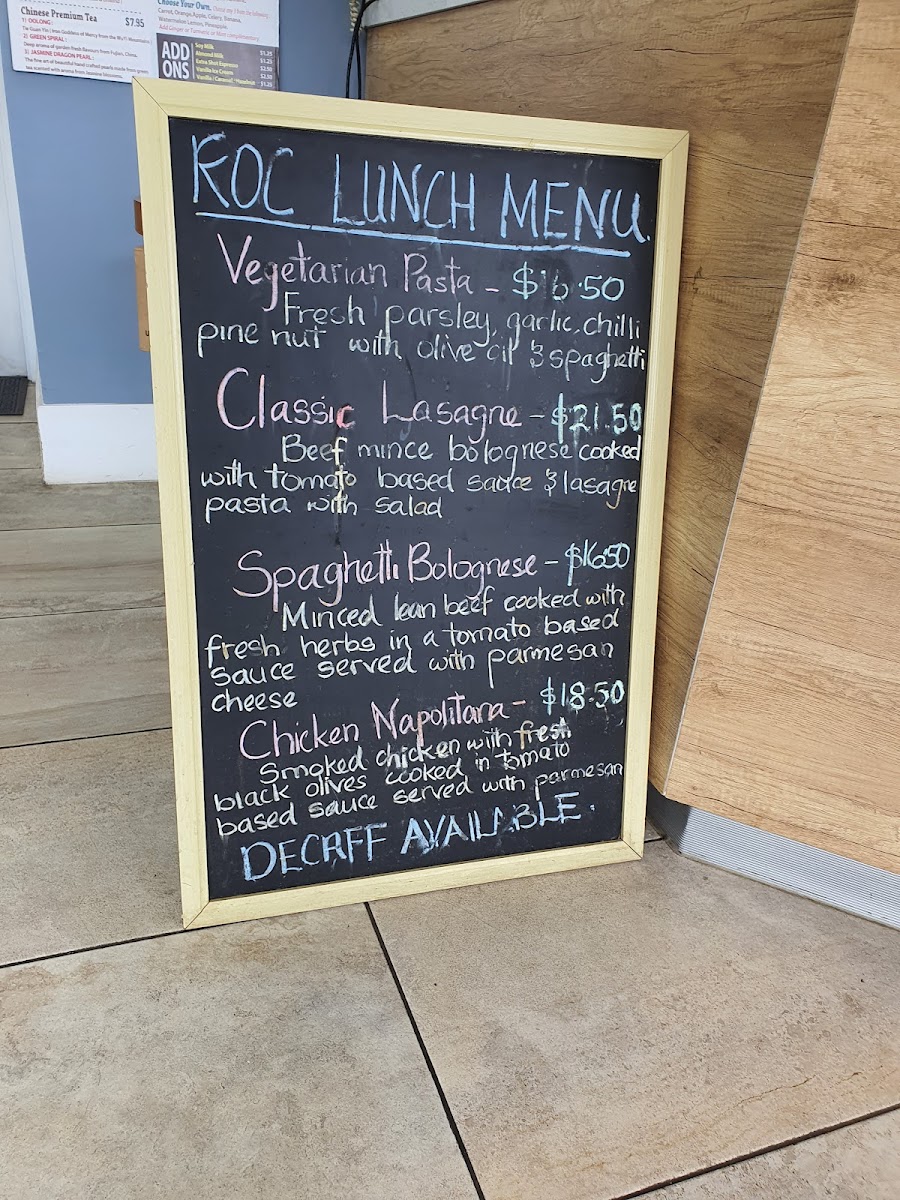 Chinese Premium Tea
$7.95
1) OOLONG :
Tie Guan Yin ( Iron Goddess of Mercy from the Wu Yi Mountains )
2) GREEN SPIRAL :
Deep aroma of garden fresh flavours from Fujian, China.
3) JASMINE DRAGON PEARL :
The fine art of beautiful hand crafted pearls made from green
tea scented with aroma from Jasmine blossoms.
Choose Your Own.
Carrot, Orange, Apple, Celery, Banana,
Watermelon, Lemon, Pineapple.
Add Ginger or Turmeric or Mint complimentary
ADD
ONS
Soy Milk $1.25
Almond Milk $1.25
Extra Shot Espresso $1.25
Vanilla Ice Cream $2.50
Vanilla / Caramel / Hazelnut $1.25
KOC LUNCH MENU.
Vegetarian Pasta - $16.50
Fresh parsley, garlic, chilli
pine nut with olive oil & spaghetti
Classic Lasagne - $21.50
Beef mince bolognese cooked
with tomato based sauce & lasagne
pasta with salad
Spaghetti Bolognese - $16.50
Minced lean beef cooked with
fresh herbs in a tomato based
sauce served with parmesan
cheese
Chicken Napolitana - $18.50
Smoked chicken with fresh
black olives cooked in tomato
based sauce served with parmesan
DECAFF AVAILABLE.